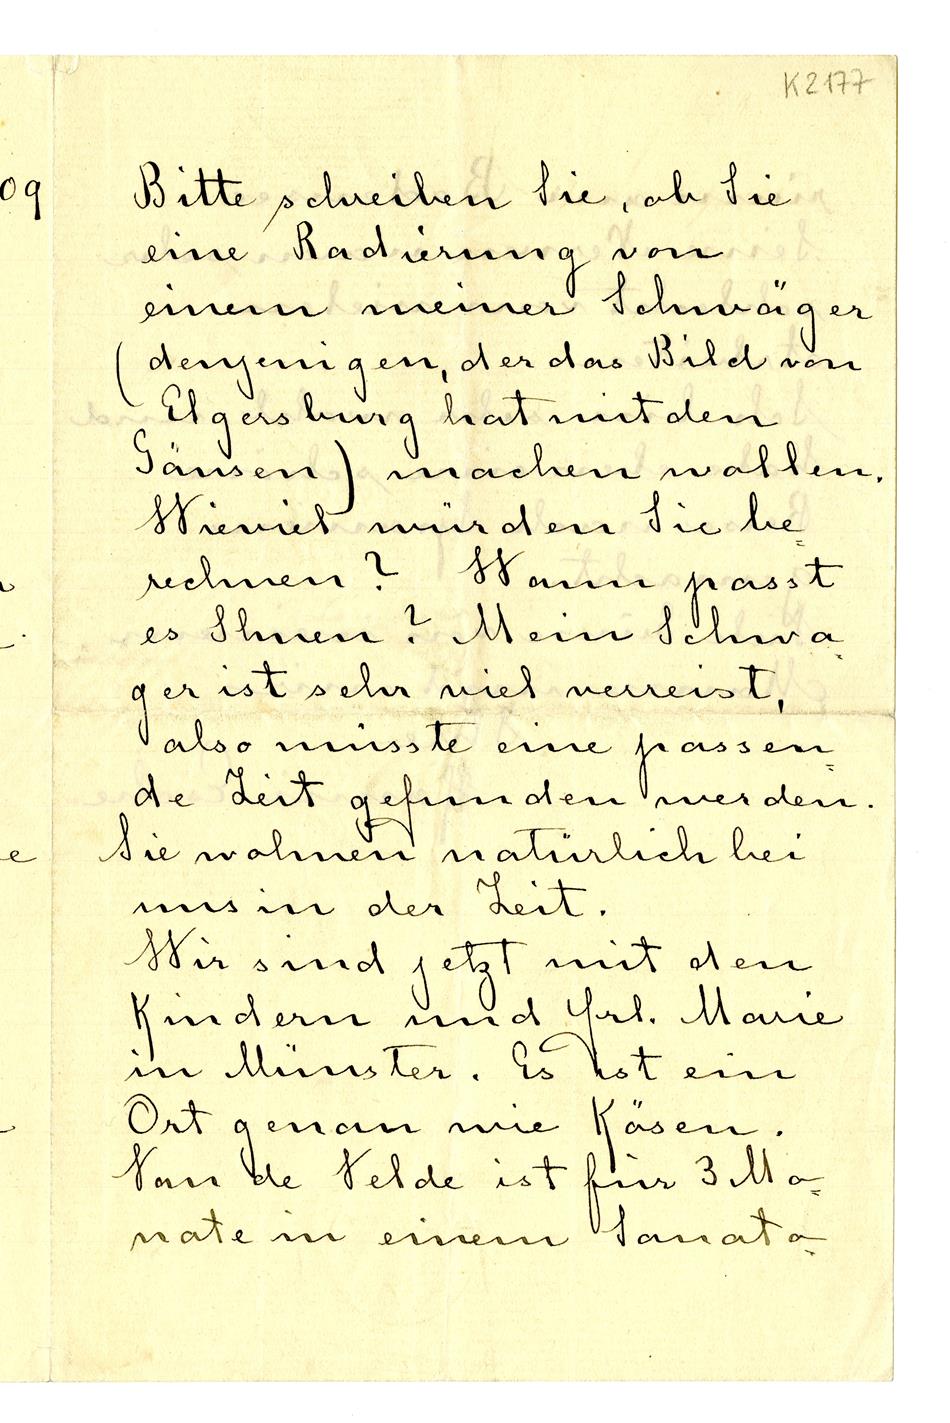 K2177
09
Bitte schreiben Sie, ob Sie
eine Radierung von
einem meiner Schwäger
(denjenigen, der das Bild von
Elgersburg hat mit den
Gänsen) machen wollen.
Wieviel würden Sie be=
rechnen? Wann passt
es Ihnen? Mein Schwa=
ger ist sehr viel verreist,
also müsste eine passen=
de Zeit gefunden werden.
Sie wohnen natürlich bei
uns in der Zeit.
Wir sind jetzt mit den
Kindern und Frl. Marie
in Münster. Es ist ein
Ort genau wie Kösen.
Van de Velde ist für 3 Mo=
nate in einem Sanato=